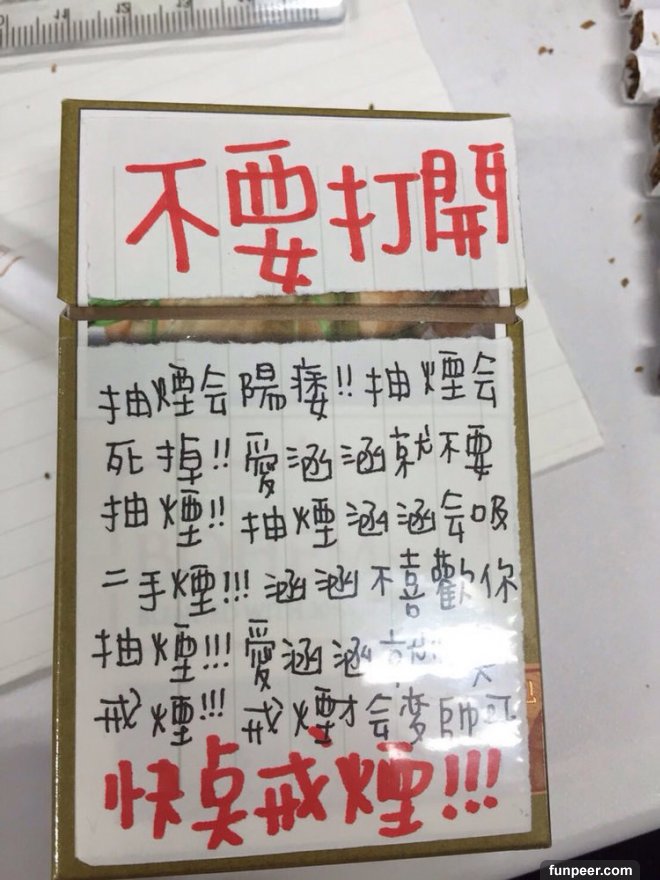 不要打開
抽煙会陽痿!! 抽煙会
死掉!! 愛涵涵就不要
抽煙!! 抽煙涵涵会吸
二手煙!!! 涵涵不喜歡你
抽煙!!! 愛涵涵就
戒煙!!! 戒煙才会變帥
!!!
funpeer.com